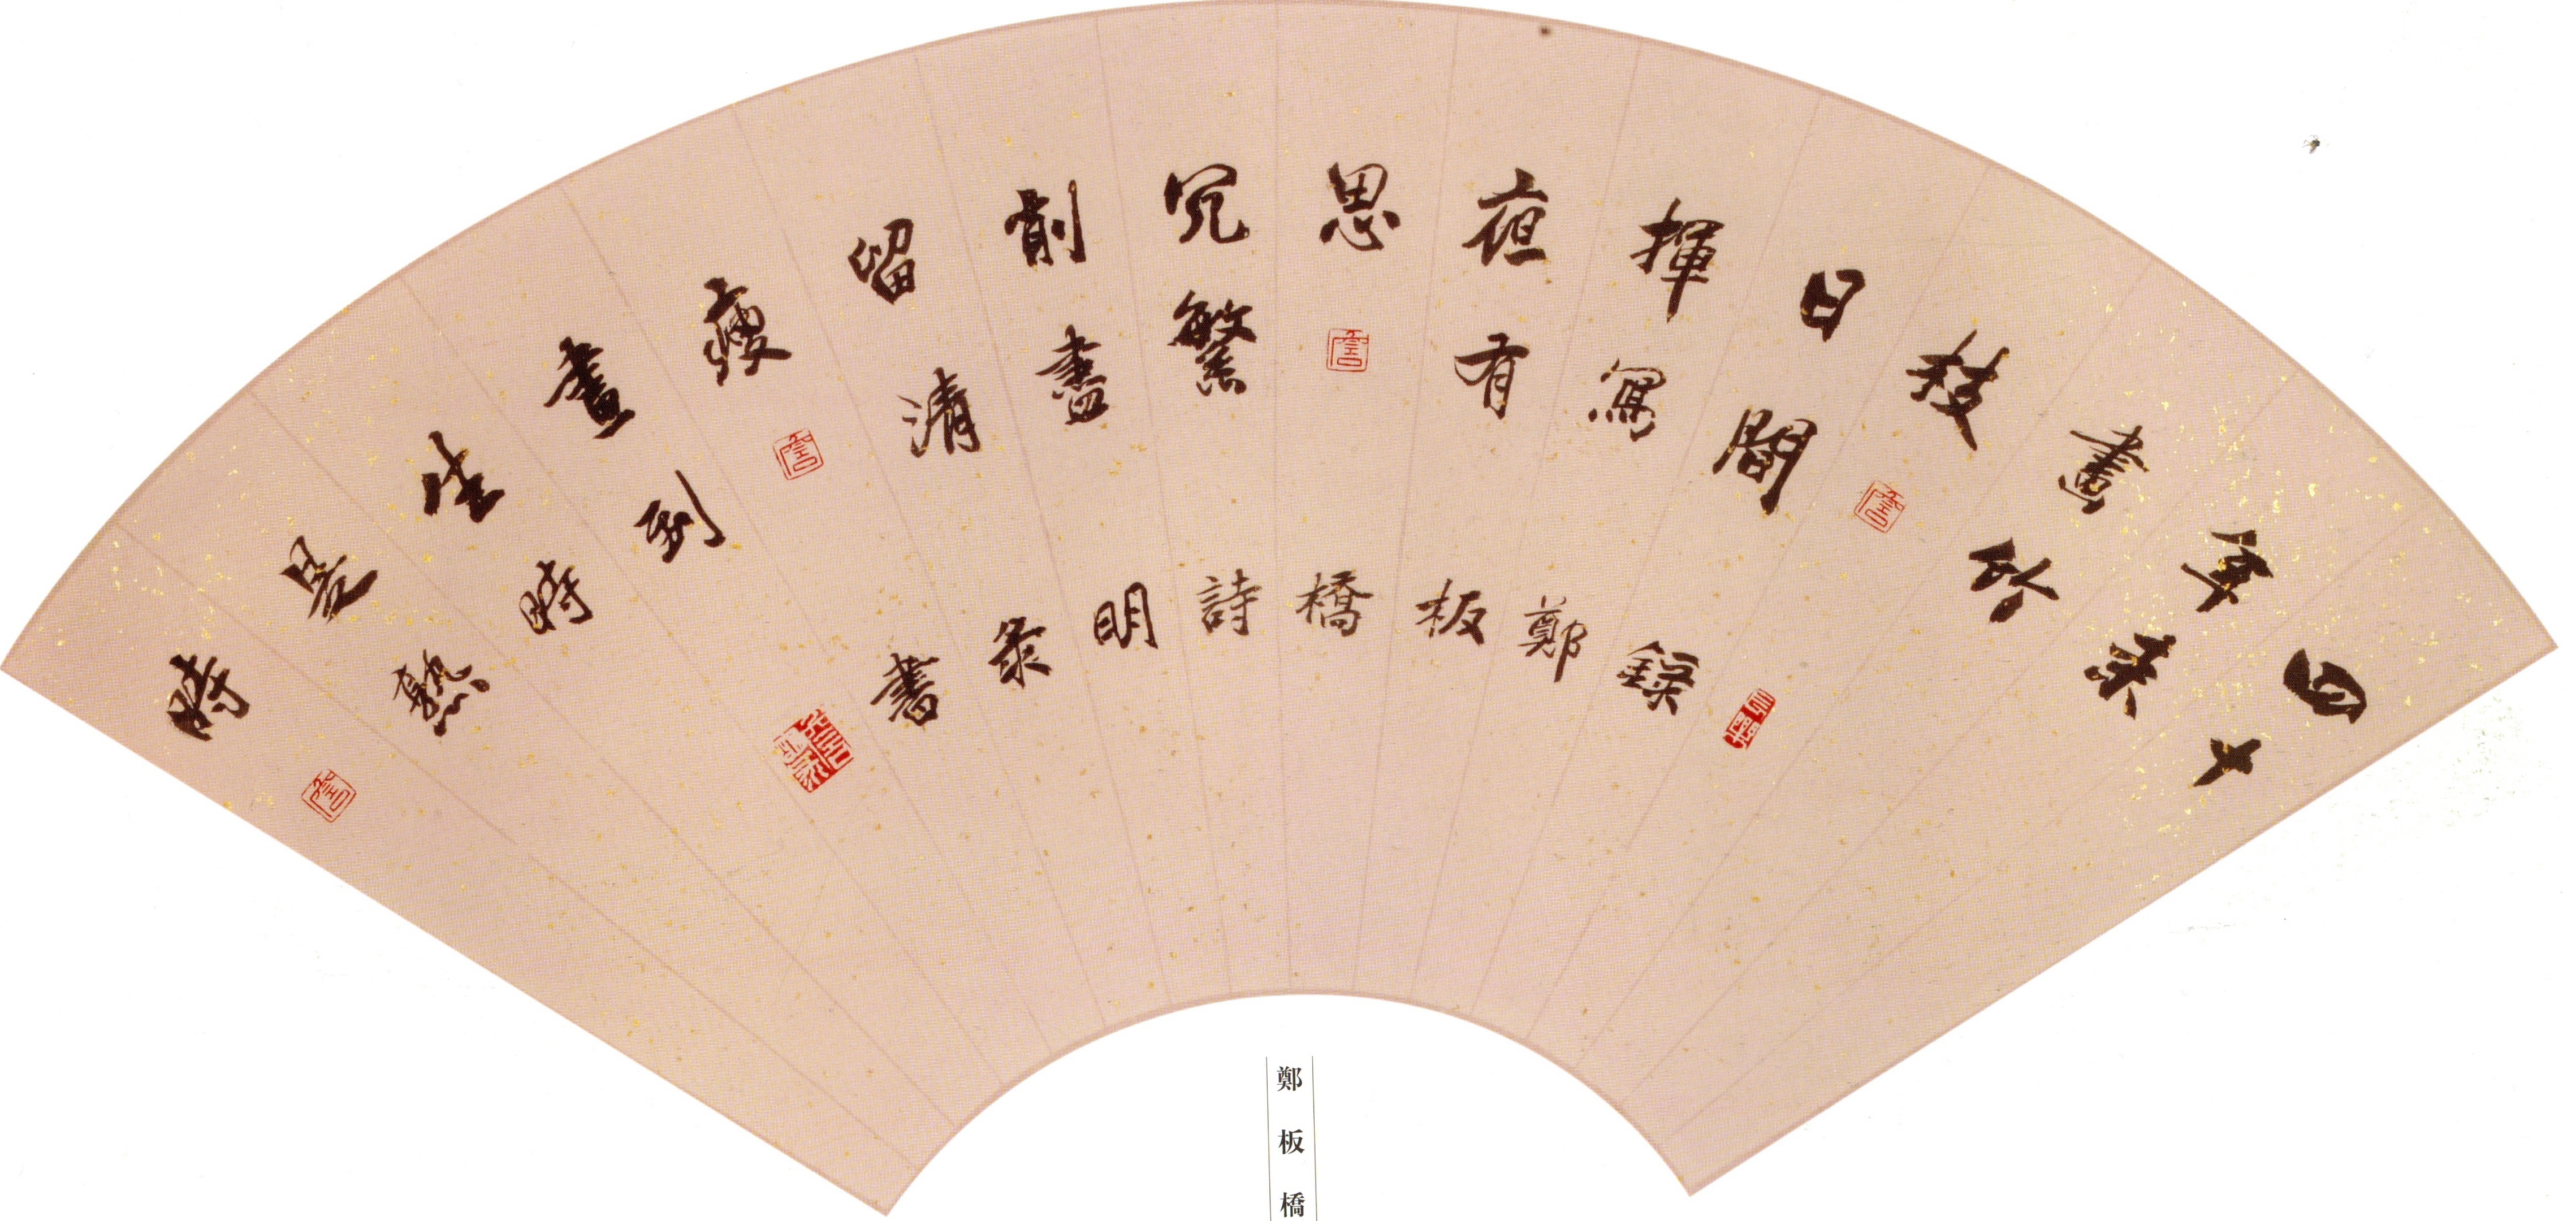 四十
年來
畫竹
枝
日間
揮寫
夜有
思
冗繁
削盡
留清
瘦
畫到
生時
是熟
時
錄鄭板橋詩明書
詹
詹
詹
詹
鄭板橋